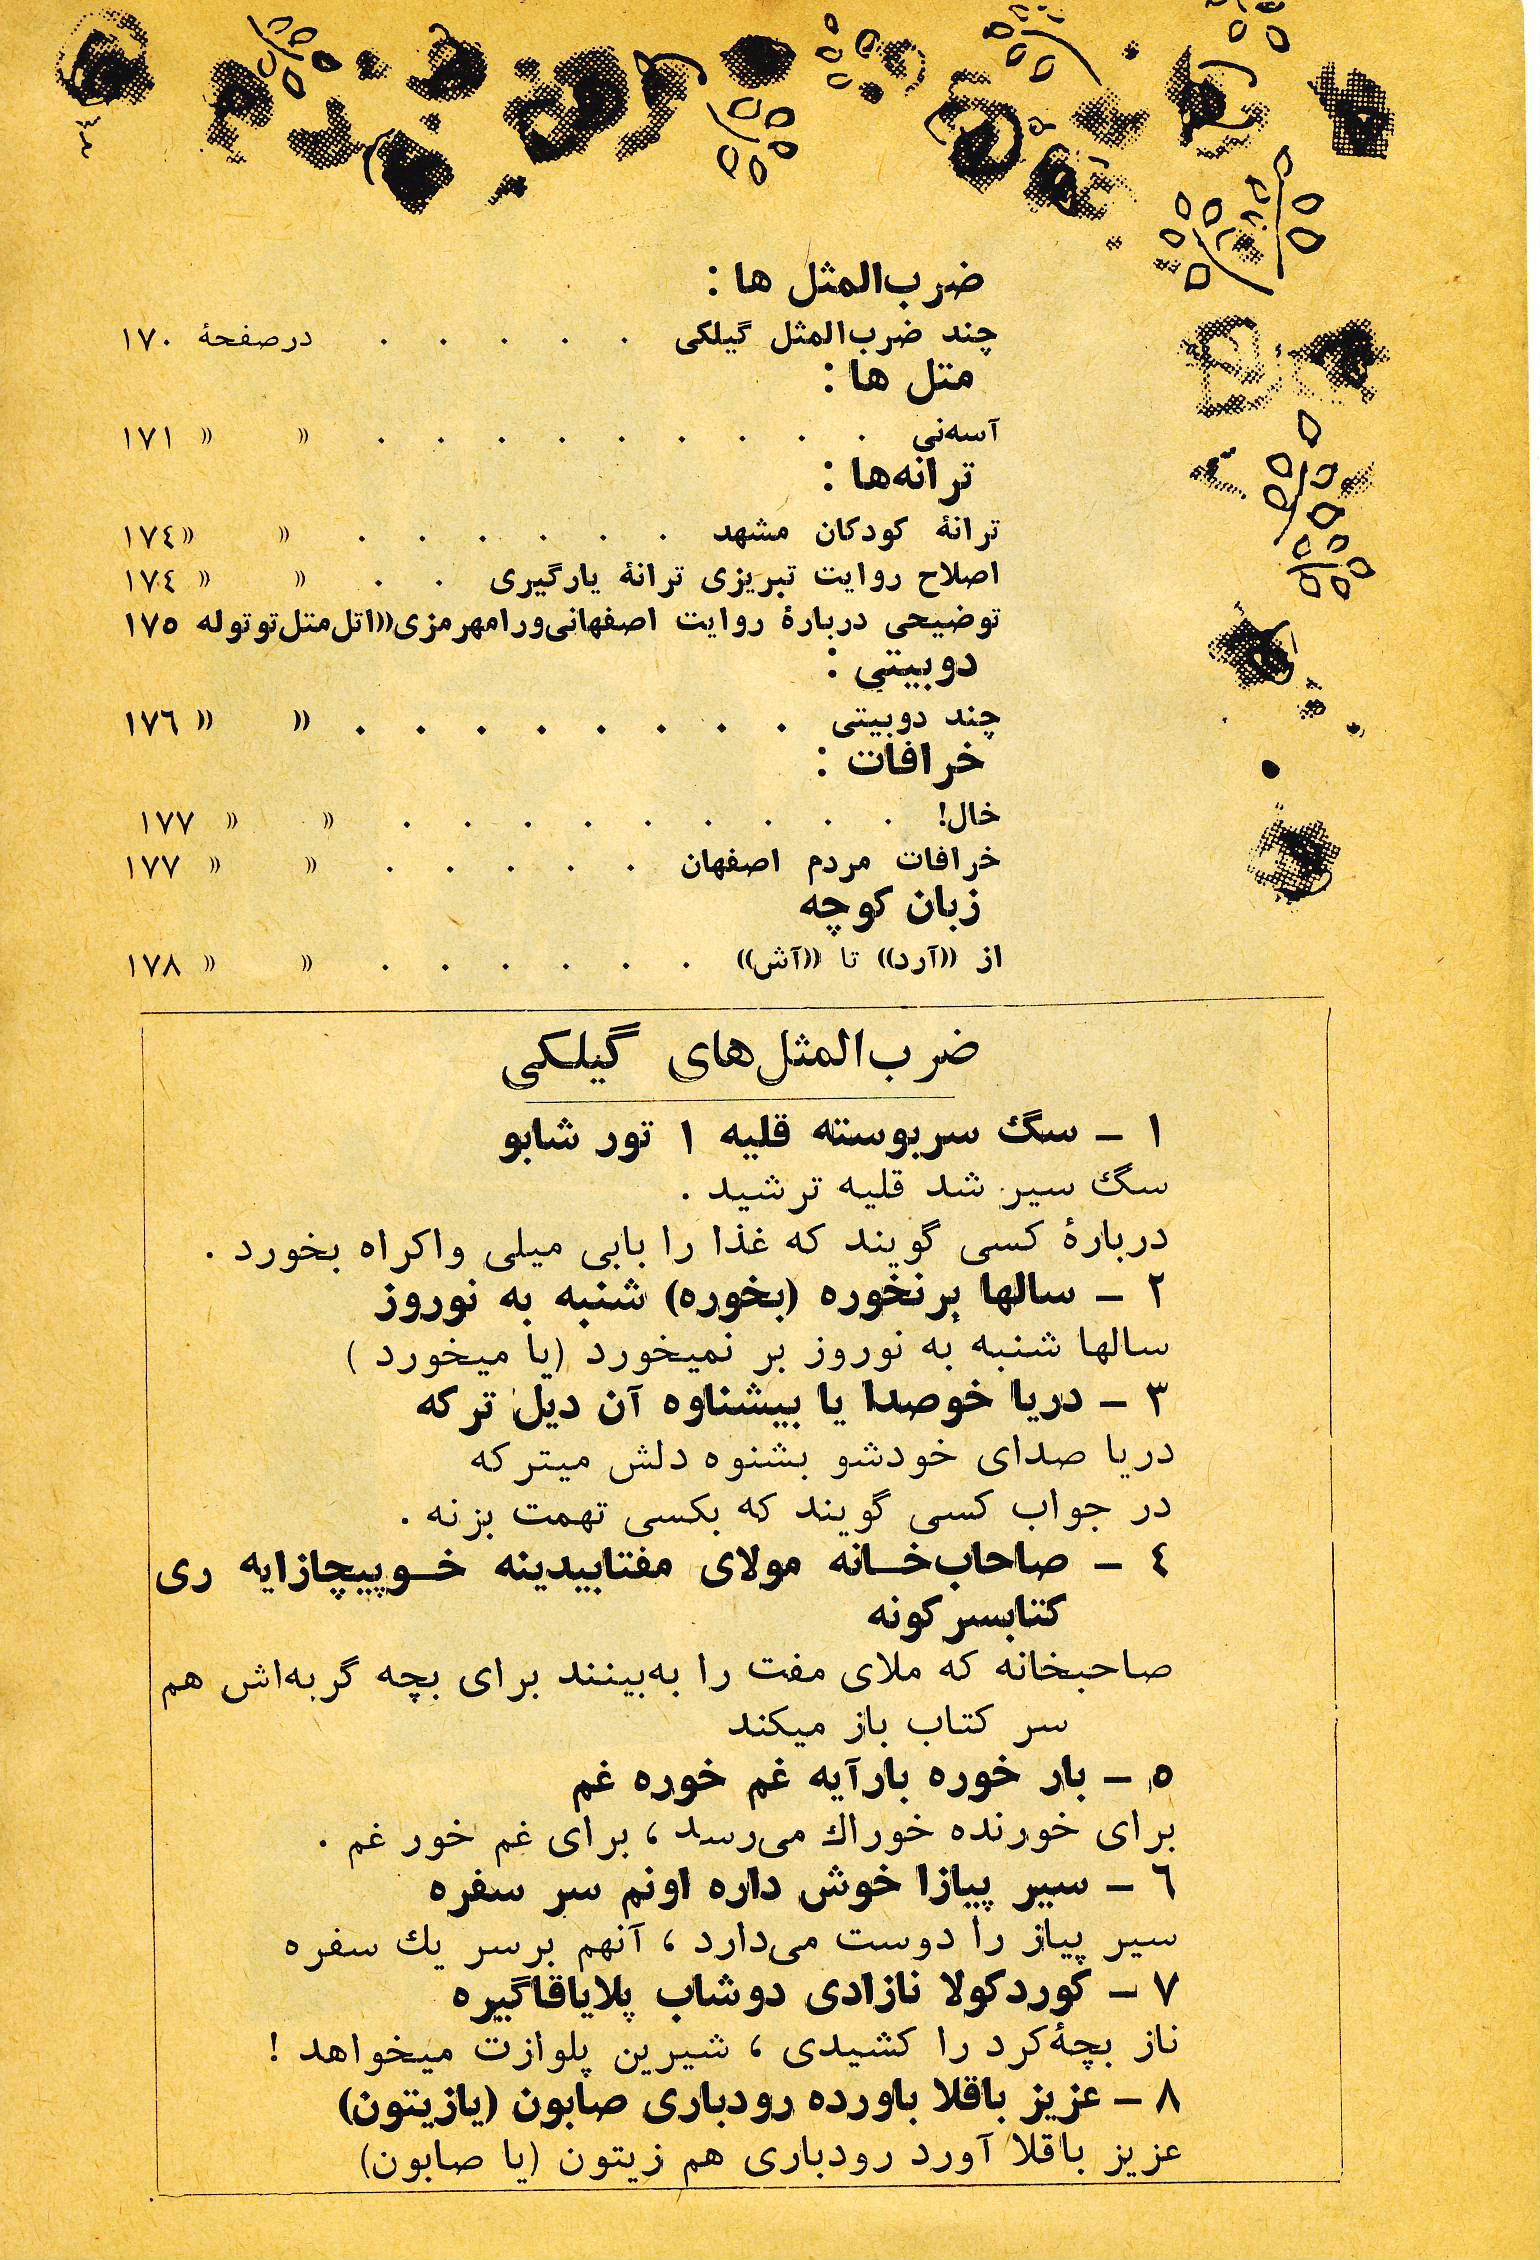 ضرب‌المثل ها :
چند ضرب‌المثل گیلکی . . . . . درصفحهٔ ۱۷۰
متل ها :
آسه‌نی . . . . . . . . . » » ۱۷۱
ترانه‌ها :
ترانهٔ کودکان مشهد . . . . . . » » ۱۷٤
اصلاح روایت تبریزی ترانهٔ یارگیری . . » » ۱۷٤
توضیحی دربارهٔ روایت اصفهانی‌ورامهرمزی«اتل‌متل‌توتوله ۱۷٥
دوبیتی :
چند دوبیتی . . . . . . . . » » ۱۷٦
خرافات :
خال! . . . . . . . . . » » ۱۷۷
خرافات مردم اصفهان . . . . . » » ۱۷۷
زبان کوچه
از «آرد» تا «آش» . . . . . . » » ۱۷۸
ضرب‌المثل‌های گیلکی
۱ – سگ سربوسته قلیه ۱ تور شابو
سگ سیر شد قلیه ترشید .
دربارهٔ کسی گویند که غذا را بابی میلی واکراه بخورد .
۲ – سالها برنخوره (بخوره) شنبه به نوروز
سالها شنبه به نوروز بر نمیخورد (یا میخورد )
۳ – دریا خوصدا یا بیشناوه آن دیل ترکه
دریا صدای خودشو بشنوه دلش میترکه
در جواب کسی گویند که بکسی تهمت بزنه .
٤ – صاحاب‌خـانه مولای مفتابیدینه خـوپیچازایه ری
کتابسرکونه
صاحبخانه که ملای مفت را به‌بینند برای بچه گربه‌اش هم
سر کتاب باز میکند
٥ – بار خوره بارآیه غم خوره غم
برای خورنده خوراك می‌رسد ، برای غم خور غم .
٦ – سیر پیازا خوش داره اونم سر سفره
سیر پیاز را دوست می‌دارد ، آنهم برسر یك سفره
۷ – کوردکولا نازادی دوشاب پلایاقاگیره
ناز بچهٔ‌کرد را کشیدی ، شیرین پلوازت میخواهد !
۸ – عزیز باقلا باورده رودباری صابون (یازیتون)
عزیز باقلا آورد رودباری هم زیتون (یا صابون)